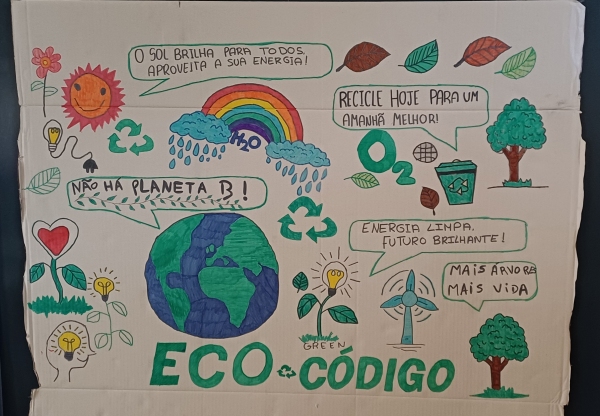 O SOL BRILHA PARA TODOS.
APROVEITA A SUA ENERGIA!
RECICLE HOJE PARA UM
AMANHÃ MELHOR!
H2O
O2
NÃO HÁ PLANETA B!
ENERGIA LIMPA,
FUTURO BRILHANTE!
MAIS ÁRVORES
MAIS VIDA
GREEN
ECO-CÓDIGO